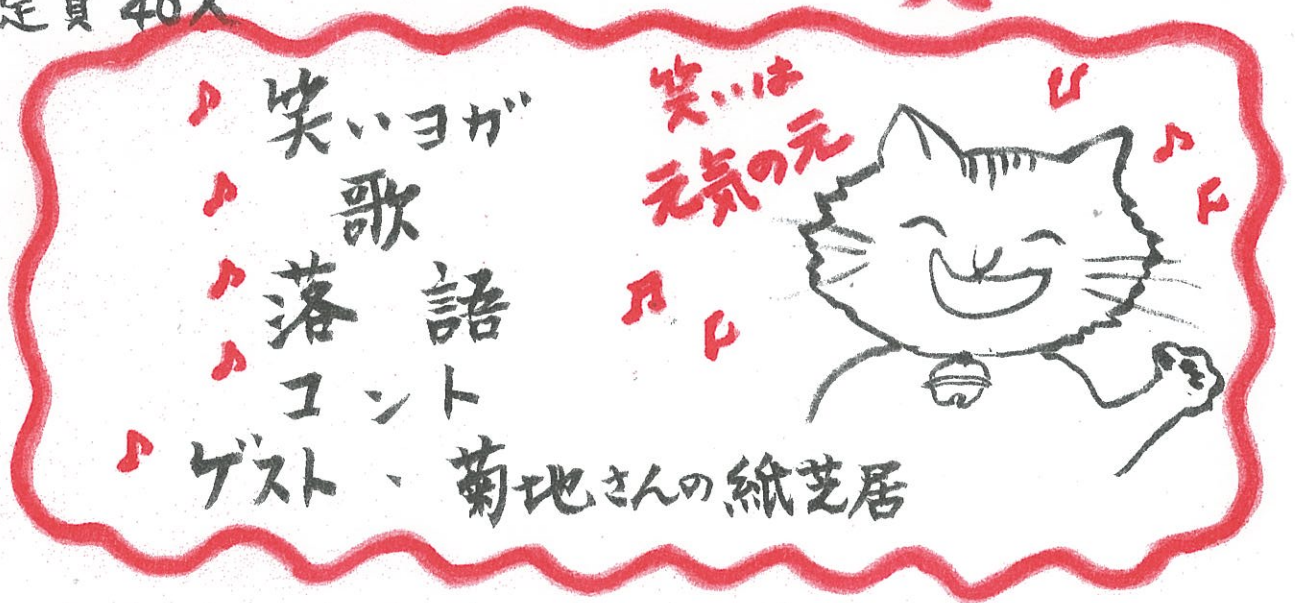 定員 40人
♪ 笑いヨガ
♪ 歌
♪ 落語
♪ コント
♪ ゲスト、菊地さんの紙芝居
笑いは
元気の元